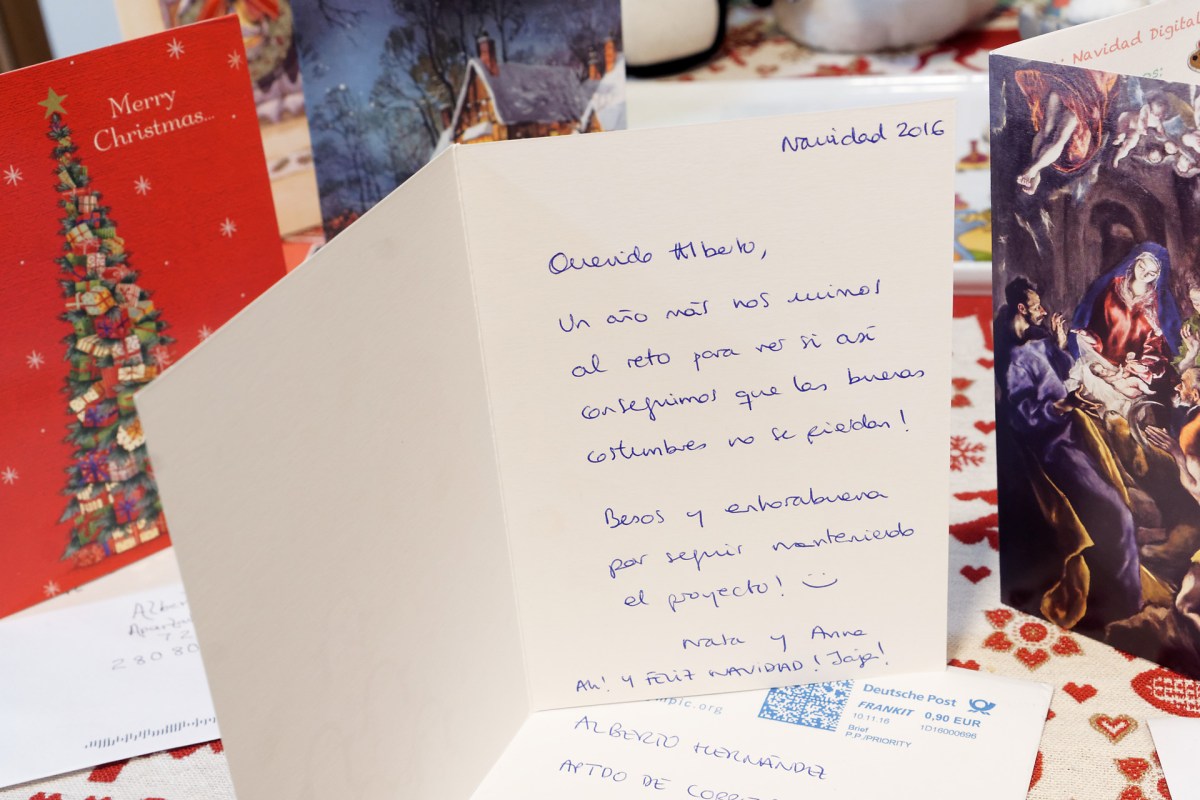 Merry
Christmas...
Navidad Digital
Navidad 2016
Querido Alberto,
Un año más nos unimos
al reto para ver si así
conseguimos que las buenas
costumbres no se pierdan!
Besos y enhorabuena
por seguir manteniendo
el proyecto! :)
Nata y Anne
Ah! Y FELIZ NAVIDAD! Jaja!
Deutsche Post
FRANKIT 0,90 EUR
10.11.16 1D16000696
Brief
P.P./PRIORITY
ALBERTO HERNÁNDEZ
APTDO DE
28080